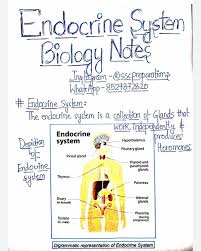 Endocrine System
Biology Notes
Instagram - @sscpreparationp
WhatsApp - 8527872820
# Endocrine System:
The endocrine system is a collection of Glands that
work independently & produces
Hormones.
Depiction
of
Endocrine
system
Endocrine
system
Hypothalamus
Pineal gland
Pituitary gland
Thyroid and
parathyroid
glands
Thymus
Pancreas
Ovary
(in female)
Adrenal
Testicle
(in male)
Placenta
(during
pregnancy)
Digrammatic representation of Endocrine System